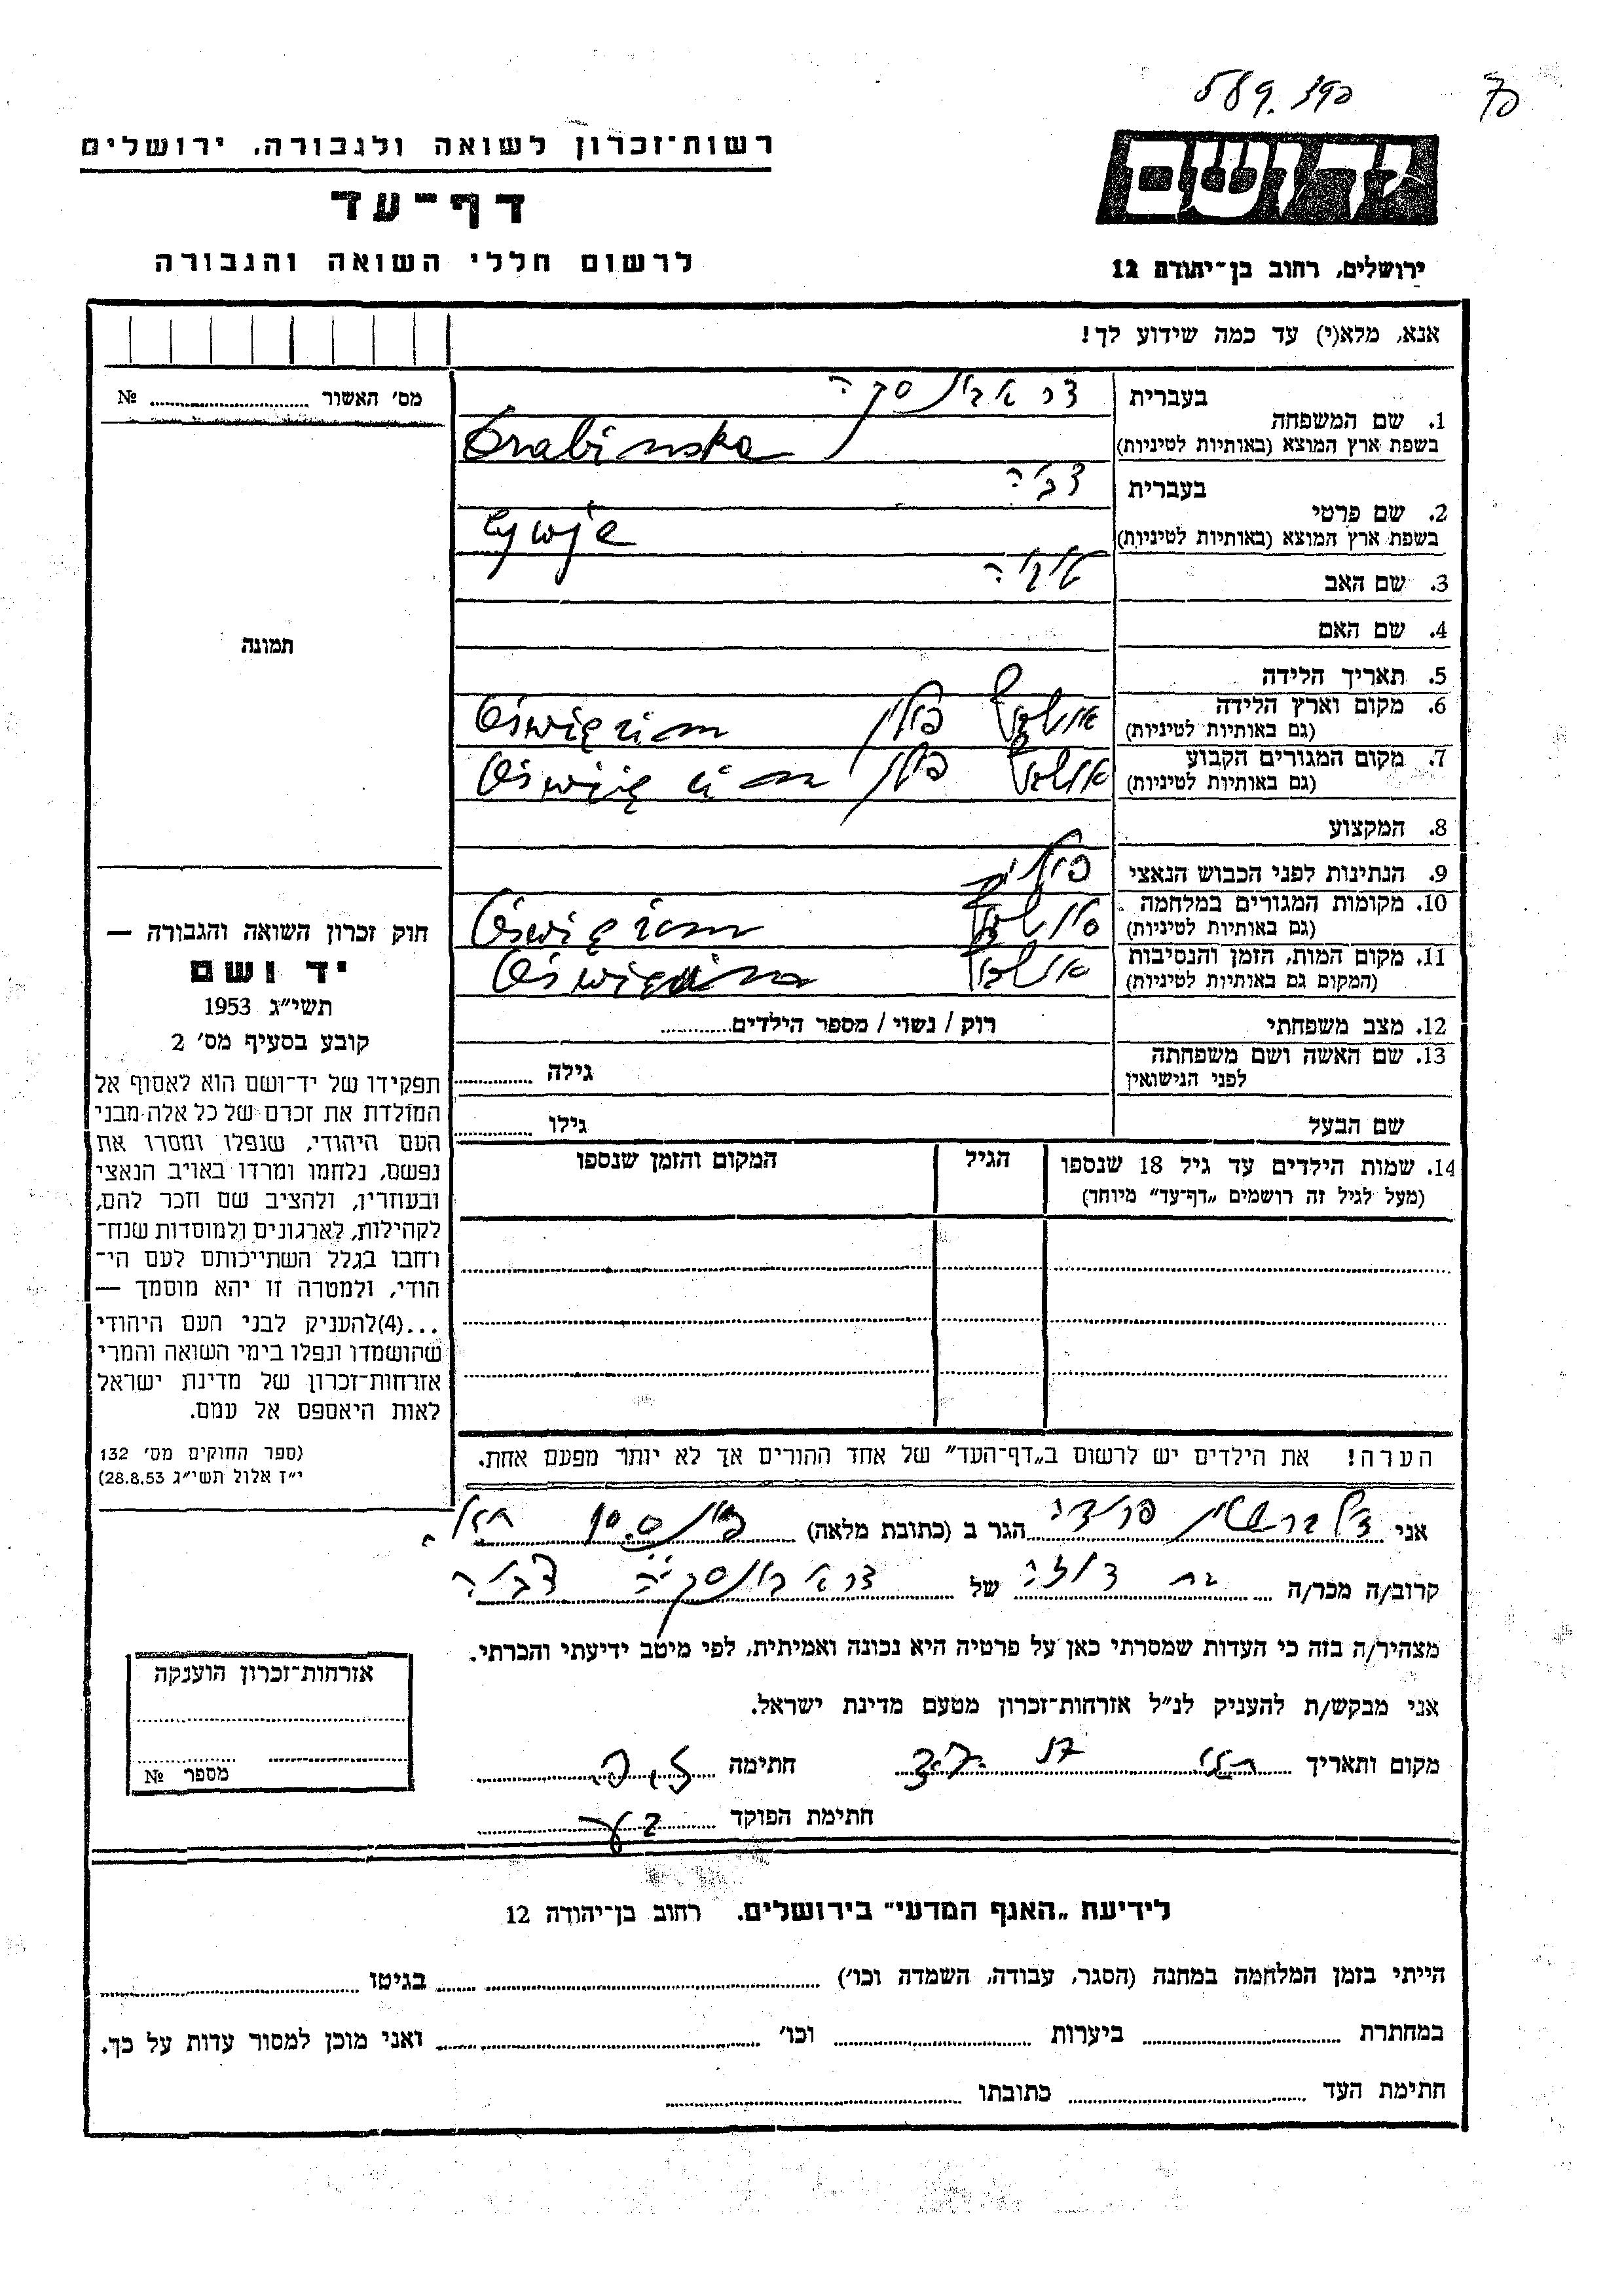 רשות־זכרון לשואה ולגבורה, ירושלים
דף־עד
לרשום חללי השואה והגבורה
יד ושם
ירושלים, רחוב בן־יהודה 12
אנא, מלא(י) עד כמה שידוע לך!
מס׳ האשור ........ №
תמונה
בעברית
1. שם המשפחה
בשפת ארץ המוצא (באותיות לטיניות)
בעברית
2. שם פרטי
בשפת ארץ המוצא (באותיות לטיניות)
3. שם האב
4. שם האם
5. תאריך הלידה
6. מקום וארץ הלידה פולין Oświęcim
(גם באותיות לטיניות)
7. מקום המגורים הקבוע פולין Oświęcim
(גם באותיות לטיניות)
8. המקצוע
9. הנתינות לפני הכבוש הנאצי
10. מקומות המגורים במלחמה Oświęcim
(גם באותיות לטיניות)
11. מקום המות, הזמן והנסיבות Oświęcim
(המקום גם באותיות לטיניות)
12. מצב משפחתי רוק / נשוי / מספר הילדים........
13. שם האשה ושם משפחתה גילה ........
לפני הנישואין
שם הבעל גילו ........
14. שמות הילדים עד גיל 18 שנספו הגיל המקום והזמן שנספו
(מעל לגיל זה רושמים „דף־עד״ מיוחד)
הערה! את הילדים יש לרשום ב„דף־העד״ של אחד ההורים אך לא יותר מפעם אחת.
חוק זכרון השואה והגבורה —
יד ושם
תשי״ג 1953
קובע בסעיף מס׳ 2
תפקידו של יד־ושם הוא לאסוף אל
המולדת את זכרם של כל אלה מבני
העם היהודי, שנפלו ומסרו את
נפשם, נלחמו ומרדו באויב הנאצי
ובעוזריו, ולהציב שם וזכר להם,
לקהילות, לארגונים ולמוסדות שנח־
רחבו בגלל השתייכותם לעם הי־
הודי, ולמטרה זו יהא מוסמך —
...(4)להעניק לבני העם היהודי
שהושמדו ונפלו בימי השואה והמרי
אזרחות־זכרון של מדינת ישראל
לאות היאספם אל עמם.
(ספר החוקים מס׳ 132
י״ז אלול תשי״ג 28.8.53)
אני הגר ב (כתובת מלאה)
קרוב/ה מכר/ה בת דודה של
מצהיר/ה בזה כי העדות שמסרתי כאן על פרטיה היא נכונה ואמיתית, לפי מיטב ידיעתי והכרתי.
אני מבקש/ת להעניק לנ״ל אזרחות־זכרון מטעם מדינת ישראל.
מקום ותאריך חתימה
חתימת הפוקד
אזרחות־זכרון הוענקה
מספר №
לידיעת „האגף המדעי״ בירושלים. רחוב בן־יהודה 12
הייתי בזמן המלחמה במחנה (הסגר, עבודה, השמדה וכו׳) ........ בגיטו ........
במחתרת ........ ביערות ........ וכו׳ ........ ואני מוכן למסור עדות על כך.
חתימת העד ........ כתובתו ........